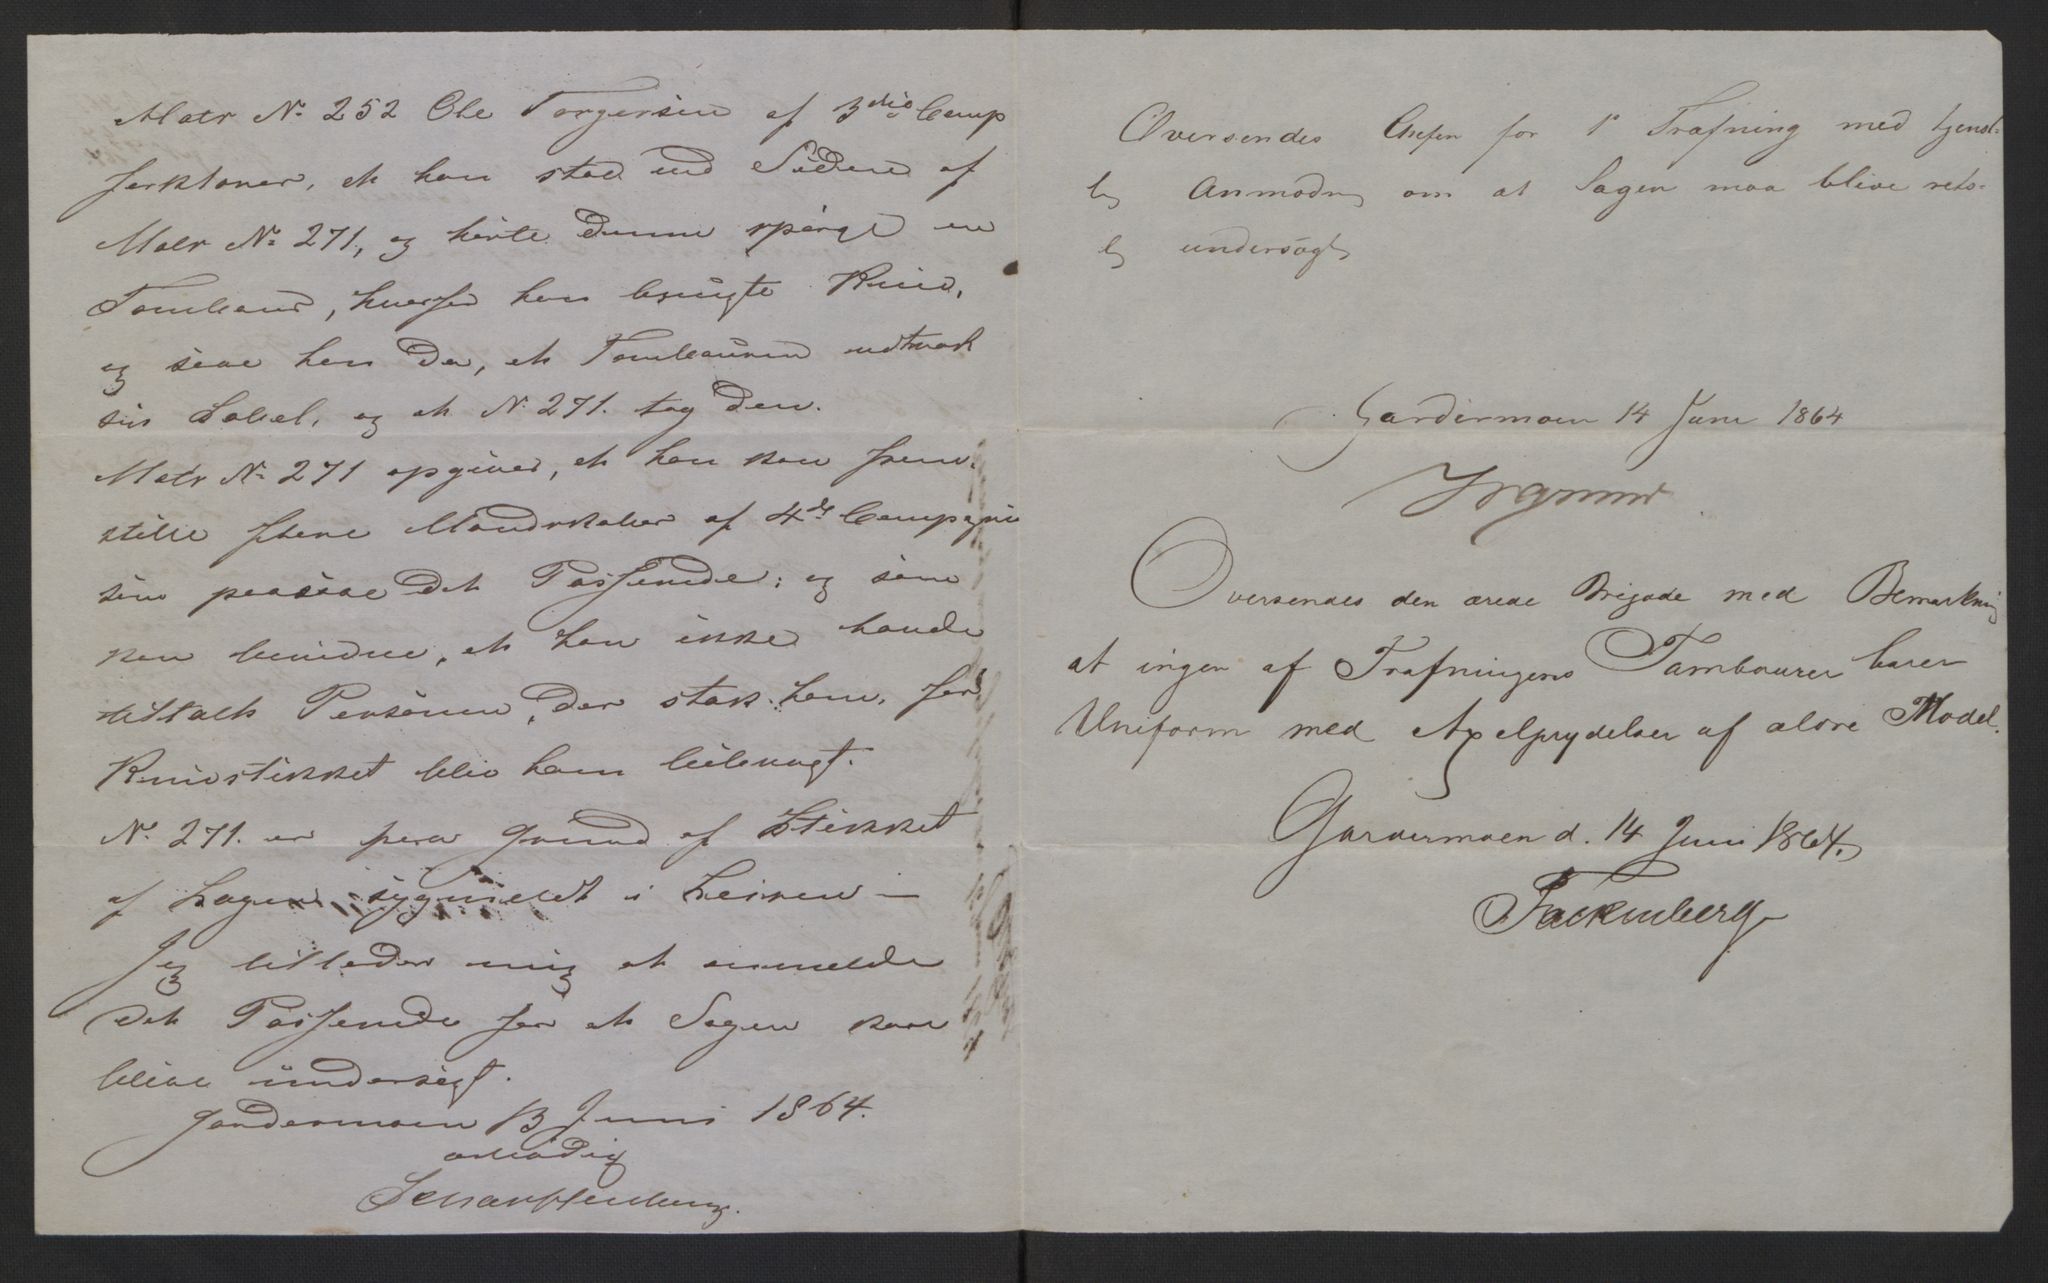 Matr No 252 Ole Torgersen af 3die Comp
forklarer, at han stod ved Siden af
Matr No 271, og hørte denne spørge en
Tambour, hvorfor han brugte Kniv,
og saae han da, at Tambouren udtrak
sin Sabel, og at N. 271. tog den.
Matr No 271 opgiver, at han kan frem-
stille flere Mandskaber af 4de Compagnie
som paasaae det Passerede; og som
kan bevidne, at han ikke havde
tiltalt Personen, der stak ham, før
Knivstikket blev ham bibragt.
N. 271. er paa Grund af Stikket
af Lægen sygmeldt i Leiren –
Jeg tillader mig at anmelde
det Passerede for at Sagen kan
blive undersøgt.
Gardermoen 13 Juni 1864.
ærbødig
Scharffenberg.
Oversendes Chefen for 1e Træfning med tjenst-
lg Anmodng om at Sagen maa blive rets-
lg undersøgt
Gardermoen 14 Juni 1864
Oversendes den ærede Brigade med Bemærkning
at ingen af Træfningens Tambourer bærer
Uniform med Axelprydelser af ældre Model.
Gardermoen d. 14 Juni 1864.
Fackenberg